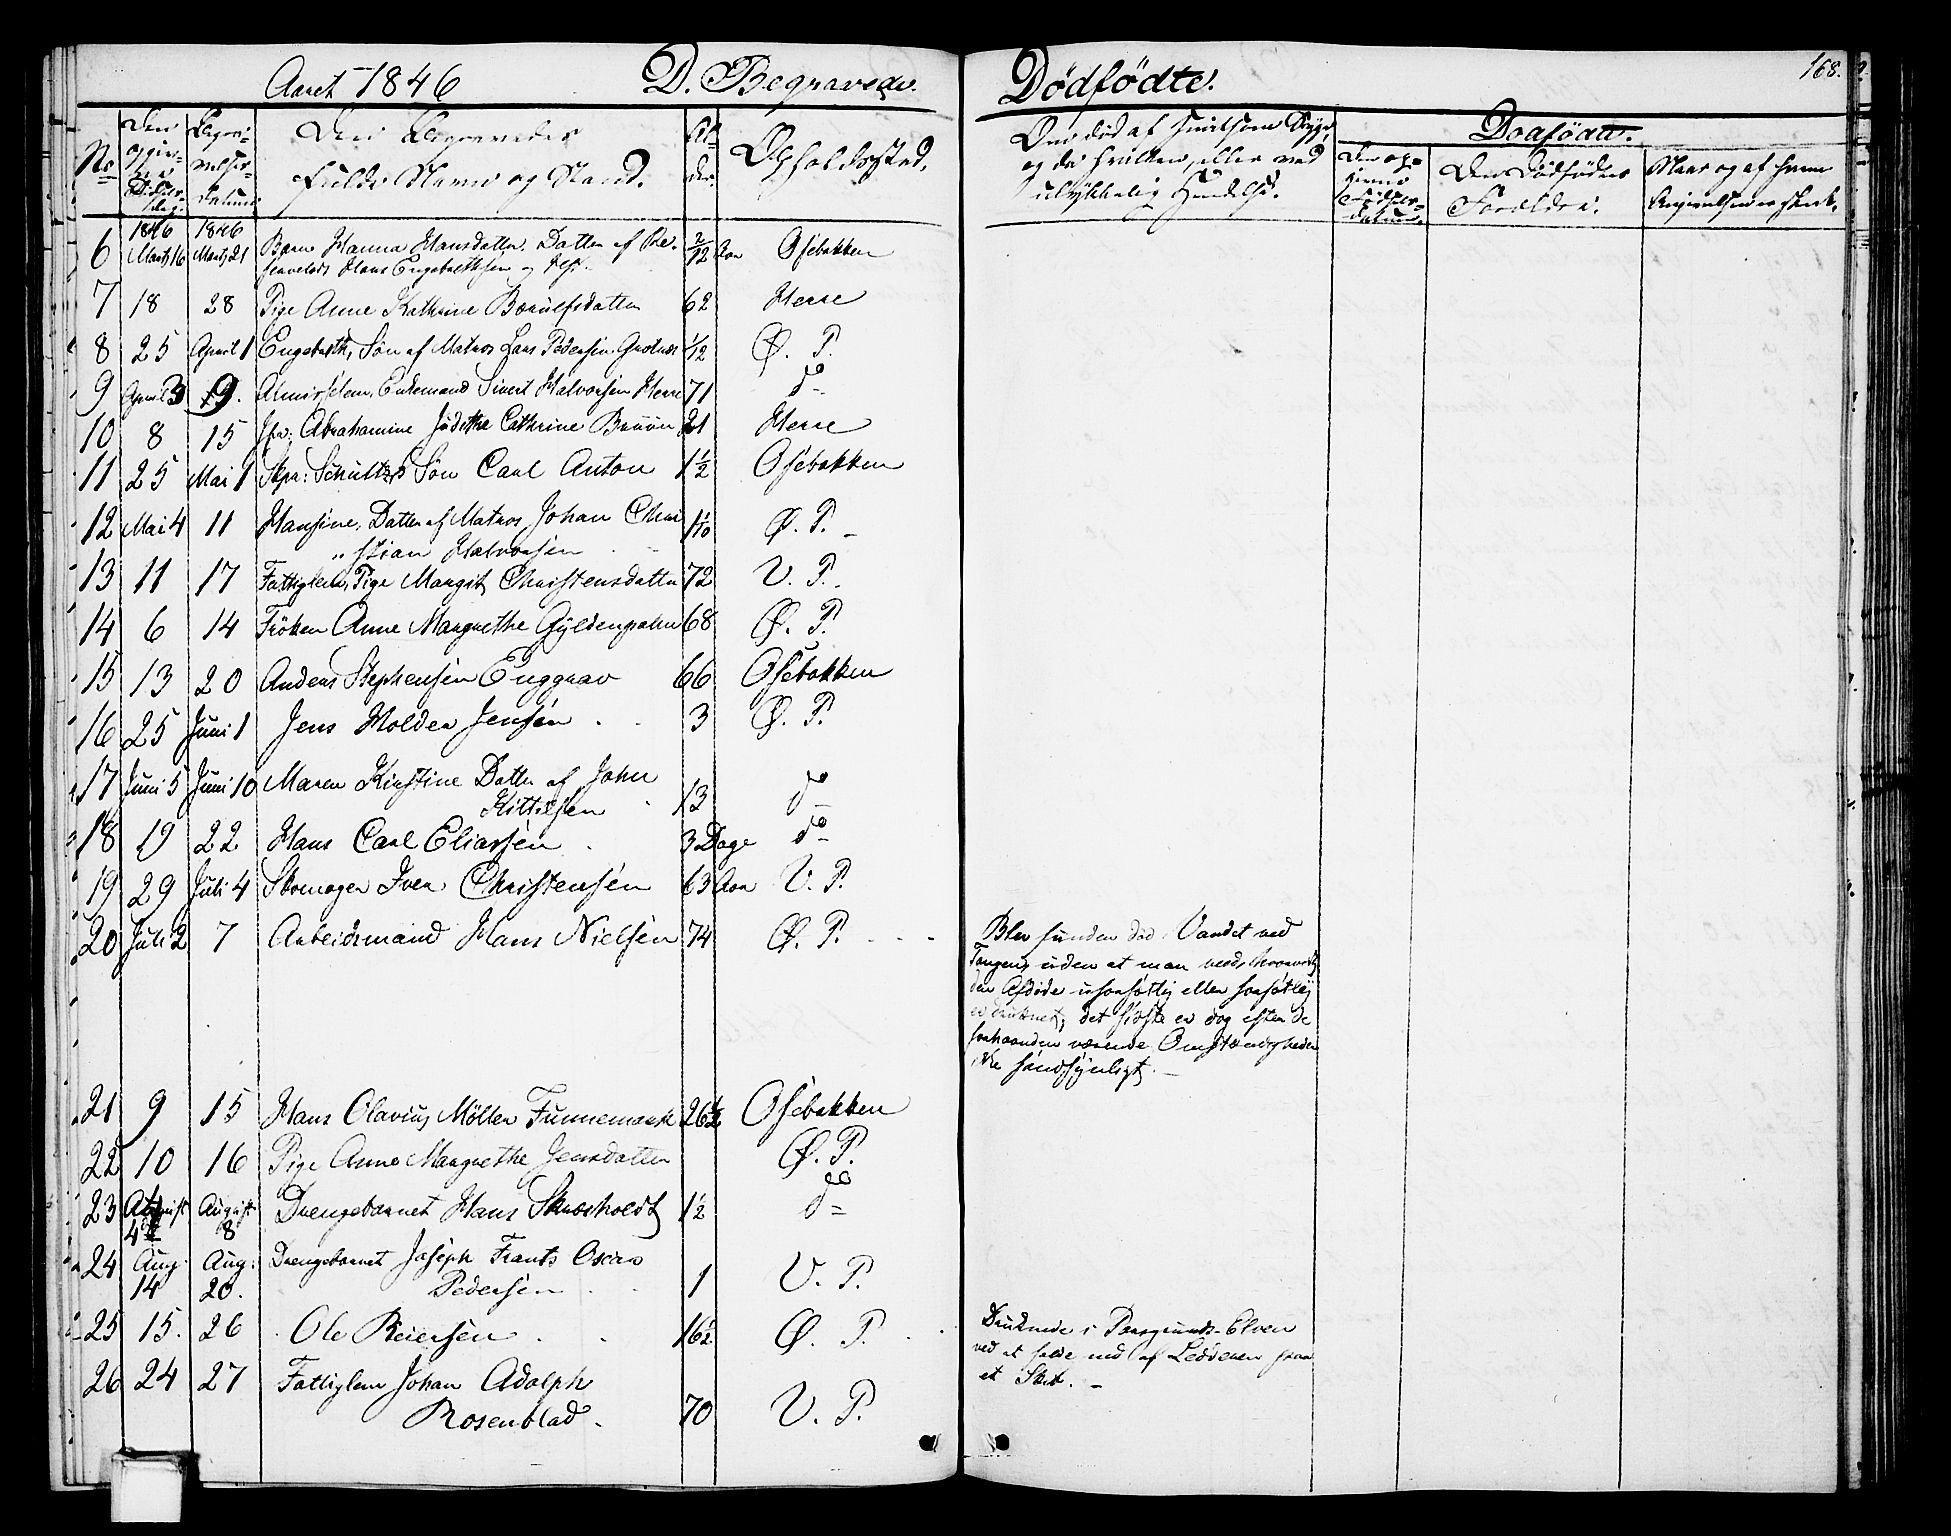 Aaret 1846 D. Begravede.
No Den opgivne Dødsdag. Begravelses Datum Den Begravedes fulde Navn og Stand. Alder. Opholdssted.
1846 1846
6 Marts 16 Marts 21 Barn Hanna Hansdatter. Datter af Re- 2/12 Aar Osebakken
serveløds Hans Engebrethsen og
7 18 28 Pige Anne Kathrine Brynildsdatter 62 Herre
8 25 April 1 Engebreth, Søn af Matros Lars Pedersen 1/12 Ø. P.
9 April 3 9. Almisselem, Enkemand Sivert Halvorsen Herre 71 do
10 8 15 Jfr: Abrahamine Judithe Cathrine Bruun 21 Herre
11 25 Mai 1 Skpr: Schultzes Søn Carl Anton 1½ Osebakken
12 Mai 4 11 Hansine, Datter af Matros Johan Chri 1/10 Ø. P.
" stian Halvorsen
13 11 17 Fattiglem, Pige Margit Christensdatter 72 V. P.
14 6 14 Frøken Anne Margrethe Gyldenpalm 68 Ø. P.
15 13 20 Anders Stephensen Enggrav 66 Osebakken
16 25 Juni 1 Jens Holder Jensen 3 Ø. P.
17 Juni 5 Juni 10 Maren Kirstine Datter af John
Kittilsen 13 do
18 19 22 Hans Carl Eliassen 3 Dage do
19 29 Juli 4 Skomager Iver Christensen 63 Aar V. P.
20 Juli 2 7 Arbeidsmand Hans Nielsen 74 Ø. P.
21 9 15 Hans Olavius Møller Funnemark 26½ Osebakken
22 10 16 Pige Anne Margrethe Jensdatter Ø. P.
23 August August Drengebarnet Hans Skräsholdt 1½ do
4de 8
24 Aug. Aug: Drengebarnet Joseph Frants Oscar
14 20. Pedersen 1 V. P.
25 15. 26 Ole Reiersen 16½ Ø. P.
26 24 27 Fattiglem Johan Adolph
Rosenblad. 70 V. P.
Dødfødte. 168.
Om død af smitsom Syge,
og da hvilken, eller ved
ulykkelig Hændelse.
Dødfødte.
Den opgivne Fødselsdatum. Den Dødfødtes Forældre. Naar og af hvem Angivelsen er skeet.
Blev funden død i Vandet ved
Tangen, uden at man veed, hvorvidt
den Afdøde uforsætlig eller forsætlig
er druknet; det sidste er dog efter de
forhaanden værende Omstændigheder
ikke sandsynligt.
Druknede i Porsgrunds-Elven
ved at falde ned af Leideren fra
et Skib.